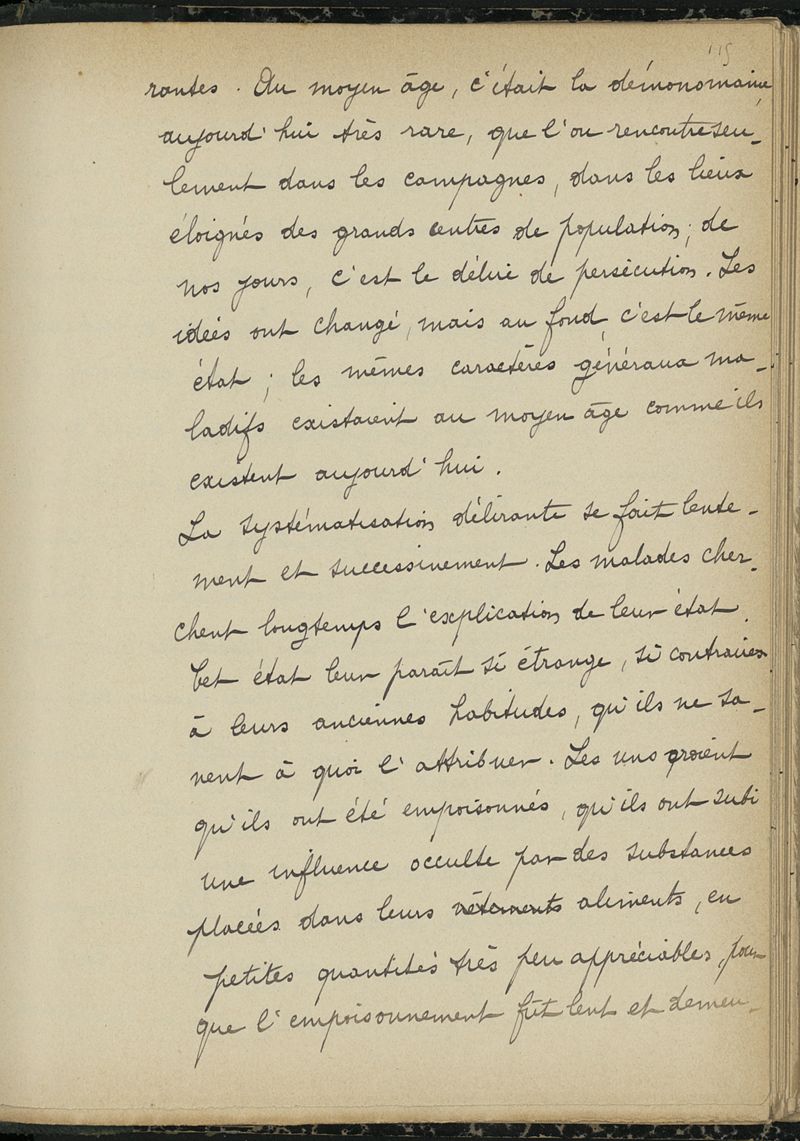 115
rantes. Au moyen âge, c'était la démonomanie,
aujourd'hui très rare, que l'on rencontre seu-
lement dans les campagnes, dans les lieux
éloignés des grands centres de population; de
nos jours, c'est le délire de persécution. Les
idées ont changé, mais au fond, c'est le même
état; les mêmes caractères généraux ma-
ladifs existaient au moyen âge comme ils
existent aujourd'hui.
La systématisation délirante se fait lente-
ment et successivement. Les malades cher-
chent longtemps l'explication de leur état.
Cet état leur paraît si étrange, si contraire
à leurs anciennes habitudes, qu'ils ne sa-
vent à quoi l'attribuer. Les uns croient
qu'ils ont été empoisonnés, qu'ils ont subi
une influence occulte par des substances
placées dans leurs vêtements aliments, en
petites quantités très peu appréciables, pour
que l'empoisonnement fût lent et demeu-